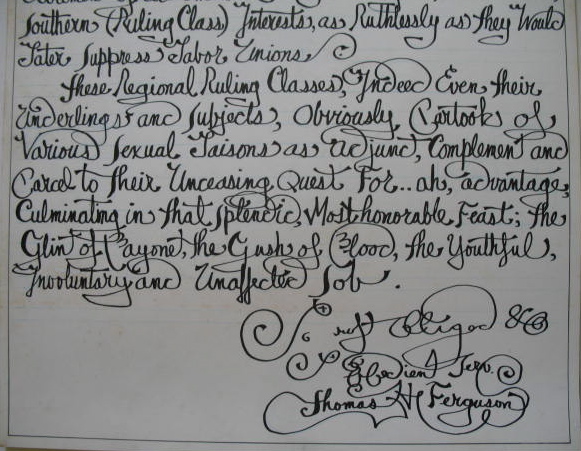 Southern (Ruling Class) Interests, as Ruthlessly as they Would
Later Suppress Labor Unions.
These Regional Ruling Classes, Indeed Even their
Underlings and Subjects, Obviously, Partook of
Various Sexual Liaisons as adjunct, Complement and
Parcel to Their Unceasing Quest For.. ah, advantage,
Culminating in that Splendid, Most honorable Feast; the
Glint of Bayonet, the Gush of Blood, the Youthful,
Involuntary and Unaffected Sob.
Obliged &c
Obedient Serv.
Thomas H Ferguson